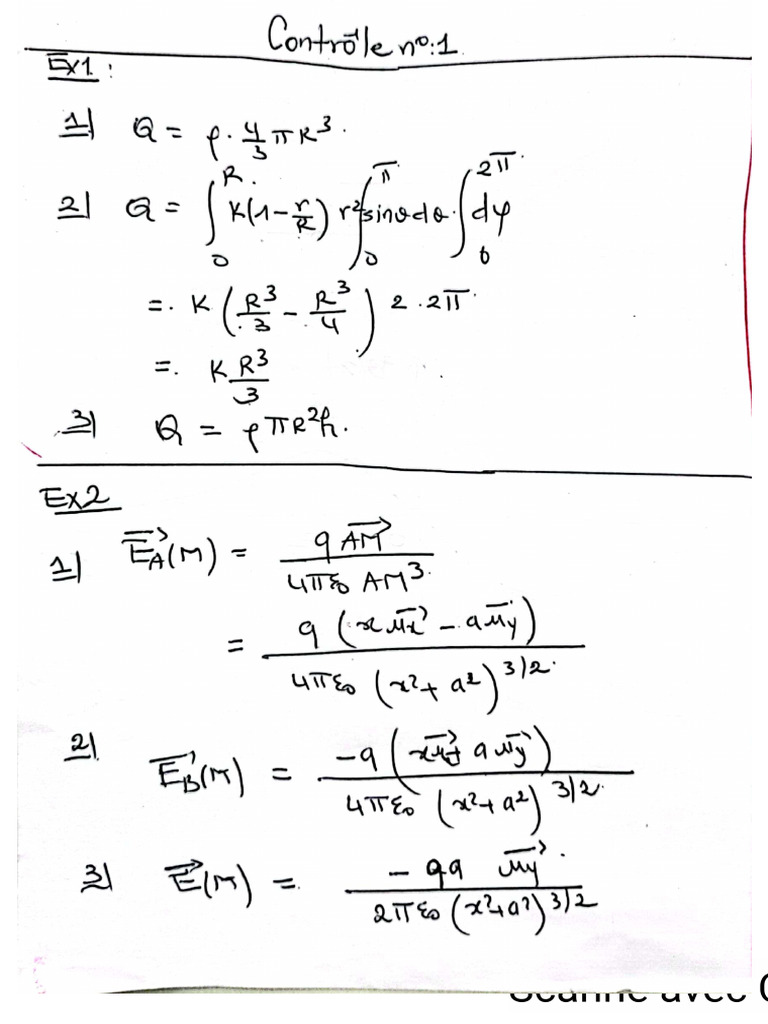 Contrôle n°:1
Ex1 :
1) Q = ρ · 4/3 π R³.
2) Q = ∫₀ᴿ K(1 - r/R) r² ∫₀^π sinθ dθ · ∫₀^2π dφ
= K (R³/3 - R³/4) 2 · 2π
= K R³/3
3) Q = ρ π R² h.
Ex2
1) E⃗_A(M) = q AM⃗ / 4πε₀ AM³
= q (x u⃗x - a u⃗y) / 4πε₀ (x² + a²)^3/2
2) E⃗_B(M) = -q (x u⃗x + a u⃗y) / 4πε₀ (x² + a²)^3/2
3) E⃗(M) = -qa u⃗y / 2πε₀ (x² + a²)^3/2